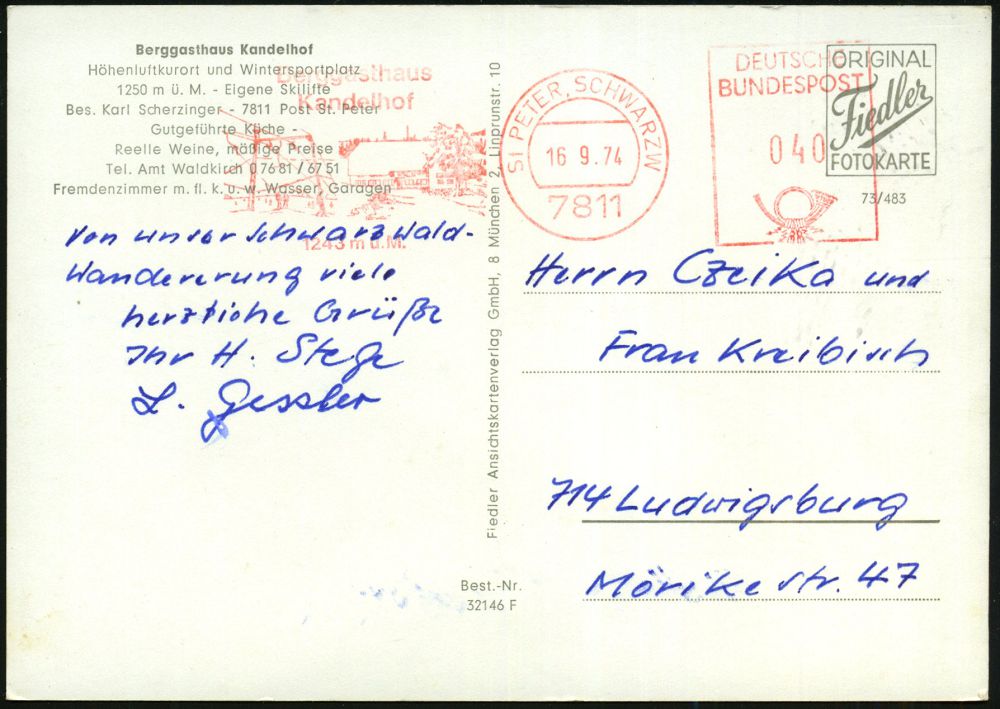 Berggasthaus Kandelhof
Höhenluftkurort und Wintersportplatz
1250 m ü. M. - Eigene Skilifte
Bes. Karl Scherzinger - 7811 Post St. Peter
Gutgeführte Küche -
Reelle Weine, mäßige Preise
Tel. Amt Waldkirch 0 76 81 / 67 51
Fremdenzimmer m. fl. k. u. w. Wasser, Garagen
Berggasthaus
Kandelhof
1243 m ü. M.
ST PETER, SCHWARZW
16 9.74
7811
DEUTSCHE
BUNDESPOST
040
ORIGINAL
Fiedler
FOTOKARTE
73/483
von unser Schwarzwald-
Wandererung viele
herzliche Grüße
Ihr H. Stege
L. Gessler
Fiedler Ansichtskartenverlag GmbH, 8 München 2, Linprunstr. 10
Herrn Czeika und
Frau Kreibisch
714 Ludwigsburg
Mörikestr. 47
Best.-Nr.
32146 F